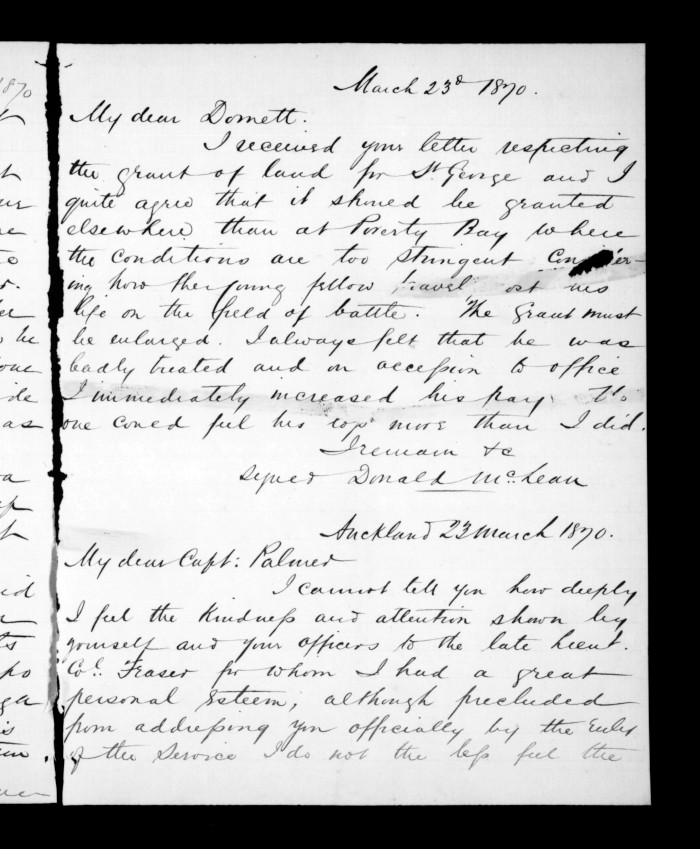 March 23d 1870.
My dear Domett.
I received your letter respecting
the grant of land for St. George and I
quite agree that it should be granted
elsewhere than at Poverty Bay where
the conditions are too stringent Consider-
ing how the young fellow lost his
life on the field of battle. The Grant must
be enlarged. I always felt that he was
badly treated and on accession to office
I immediately increased his pay. No
one could feel his loss more than I did.
I remain &c
signed Donald McLean
Auckland 23 March 1870.
My dear Capt: Palmer
I cannot tell you how deeply
I feel the Kindness and attention shown by
yourself and your officers to the late Lieut.
Col. Fraser for whom I had a great
personal esteem; although precluded
from addressing you officially by the Rules
of the Service I do not the less feel the
1870